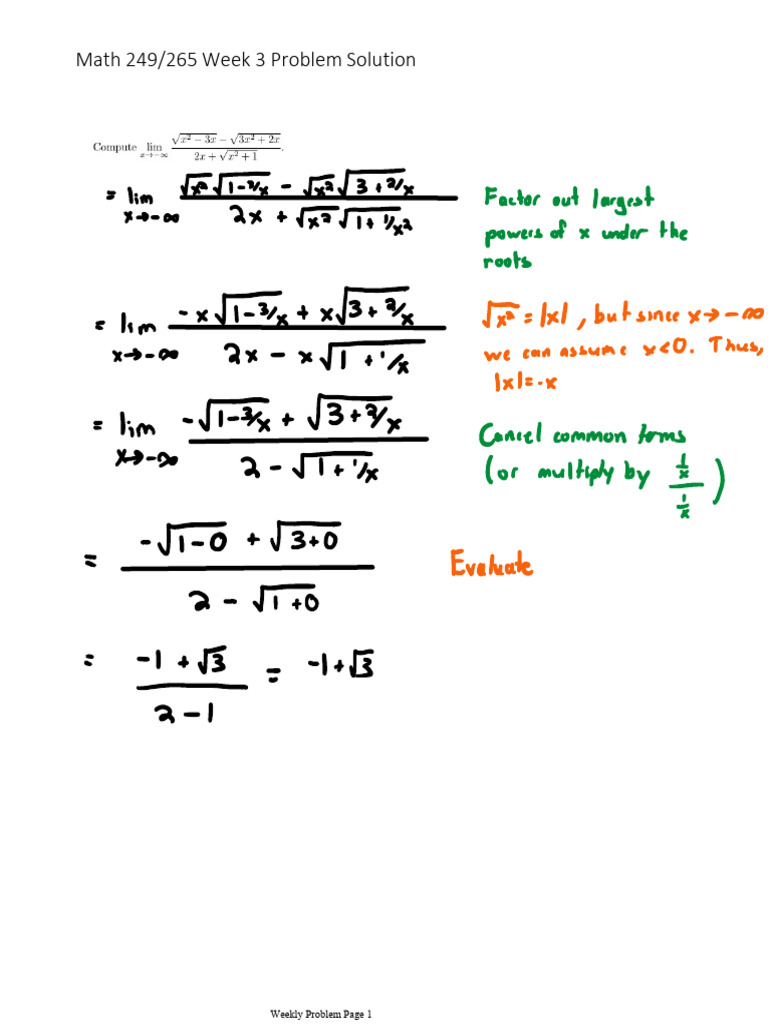 Math 249/265 Week 3 Problem Solution
Compute lim x→−∞ (√(x² − 3x) − √(3x² + 2x)) / (2x + √(x² + 1)).
= lim x→−∞ (√x² √(1−3/x) − √x² √(3+2/x)) / (2x + √x² √(1+1/x²))
Factor out largest
powers of x under the
roots
= lim x→−∞ (−x√(1−3/x) + x√(3+2/x)) / (2x − x√(1+1/x))
√x² = |x|, but since x→−∞
we can assume x<0. Thus,
|x|=-x
= lim x→−∞ (−√(1−3/x) + √(3+2/x)) / (2 − √(1+1/x))
Cancel common terms
(or multiply by (1/x)/(1/x))
= (−√(1−0) + √(3+0)) / (2 − √(1+0))
Evaluate
= (−1+√3) / (2−1) = −1+√3
Weekly Problem Page 1